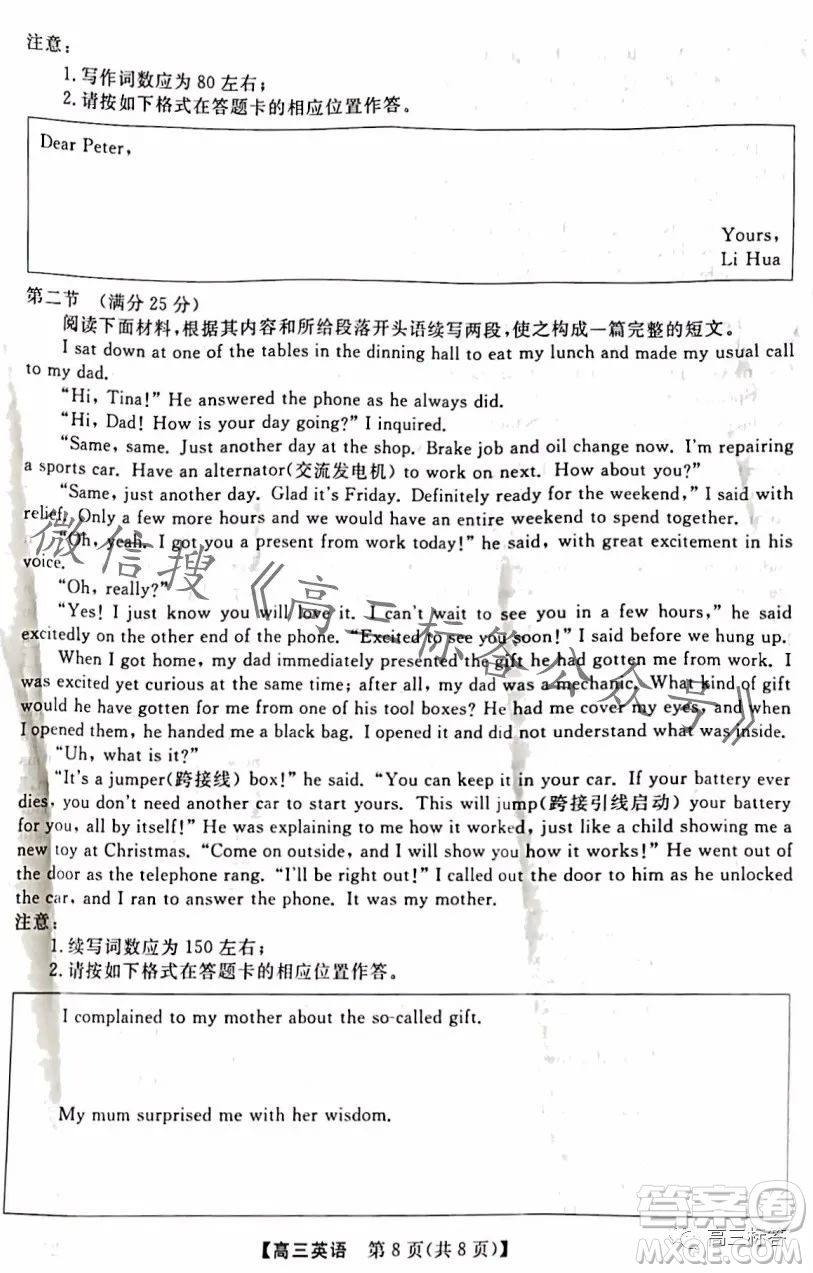 注意：
1.写作词数应为80左右；
2.请按如下格式在答题卡的相应位置作答。
Dear Peter,
Yours,
Li Hua
第二节 （满分25分）
阅读下面材料，根据其内容和所给段落开头语续写两段，使之构成一篇完整的短文。
I sat down at one of the tables in the dinning hall to eat my lunch and made my usual call
to my dad.
“Hi, Tina!” He answered the phone as he always did.
“Hi, Dad! How is your day going?” I inquired.
“Same, same. Just another day at the shop. Brake job and oil change now. I'm repairing
a sports car. Have an alternator(交流发电机) to work on next. How about you?”
“Same, just another day. Glad it's Friday. Definitely ready for the weekend,” I said with
relief. Only a few more hours and we would have an entire weekend to spend together.
“Oh, yeah. I got you a present from work today!” he said, with great excitement in his
voice.
“Oh, really?”
“Yes! I just know you will love it. I can't wait to see you in a few hours,” he said
excitedly on the other end of the phone. “Excited to see you soon!” I said before we hung up.
When I got home, my dad immediately presented the gift he had gotten me from work. I
was excited yet curious at the same time; after all, my dad was a mechanic. What kind of gift
would he have gotten for me from one of his tool boxes? He had me cover my eyes, and when
I opened them, he handed me a black bag. I opened it and did not understand what was inside.
“Uh, what is it?”
“It's a jumper(跨接线) box!” he said. “You can keep it in your car. If your battery ever
dies, you don't need another car to start yours. This will jump(跨接引线启动) your battery
for you, all by itself!” He was explaining to me how it worked, just like a child showing me a
new toy at Christmas. “Come on outside, and I will show you how it works!” He went out of
the door as the telephone rang. “I'll be right out!” I called out the door to him as he unlocked
the car, and I ran to answer the phone. It was my mother.
注意：
1.续写词数应为150左右；
2.请按如下格式在答题卡的相应位置作答。
I complained to my mother about the so-called gift.
My mum surprised me with her wisdom.
【高三英语 第8页(共8页)】
微信搜《高三标答公众号》
高三标答
答案圈
MXQE.COM